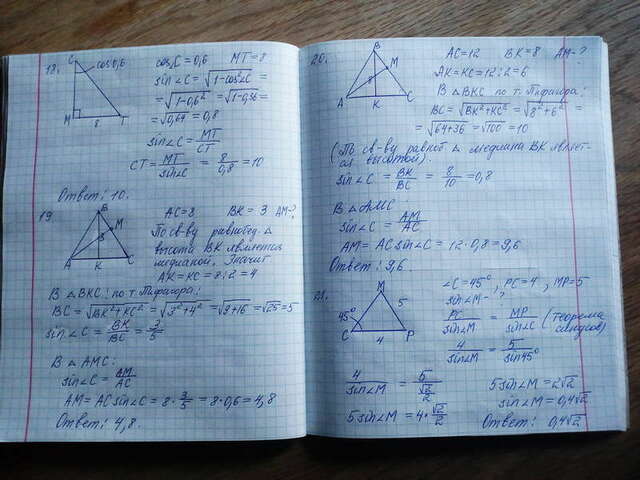 18.
C
cos 0,6
M 8 T
cosC = 0,6 MT = 8
sin∠C = √(1-cos²C) =
= √(1-0,6²) = √(1-0,36) =
= √0,64 = 0,8
sin∠C = MT/CT
CT = MT/sin∠C = 8/0,8 = 10
Ответ: 10.
19
B
M
3
A K C
AC = 8 BK = 3 AM-?
По св-ву равнобед. △
высота BK является
медианой. Значит
AK = KC = 8:2 = 4
В △BKC: по т. Пифагора:
BC = √(BK²+KC²) = √(3²+4²) = √(9+16) = √25 = 5
sin∠C = BK/BC = 3/5
В △AMC:
sin∠C = AM/AC
AM = AC sin∠C = 8·3/5 = 8·0,6 = 4,8
Ответ: 4,8.
20.
B
M
8
A K C
AC = 12 BK = 8 AM-?
AK = KC = 12:2 = 6
В △BKC по т. Пифагора:
BC = √(BK²+KC²) = √(8²+6²) =
= √(64+36) = √100 = 10
(По св-ву равноб △ медиана BK являет-
ся высотой).
sin∠C = BK/BC = 8/10 = 0,8
В △AMC
sin∠C = AM/AC
AM = AC sin∠C = 12·0,8 = 9,6
Ответ: 9,6.
M
45° 5
C 4 P
∠C = 45°, PC = 4, MP = 5
sin∠M - ?
PC/sin∠M = MP/sin∠C (теорема
синусов)
4/sin∠M = 5/sin45°
4/sin∠M = 5/(√2/2)
5sin∠M = 4·√2/2
5sin∠M = 2√2
sin∠M = 0,4√2
Ответ: 0,4√2